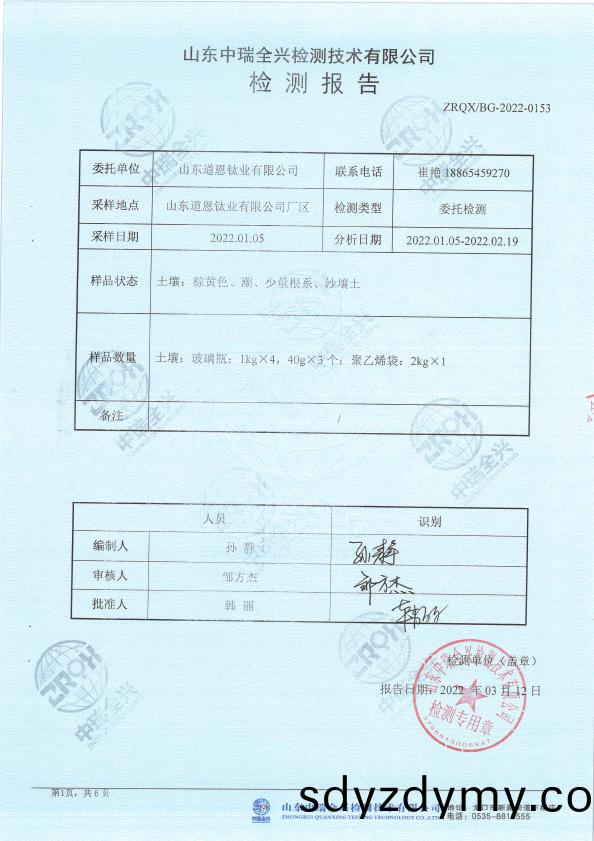 山东中瑞全兴检测技术有限公司
检 测 报 告
ZRQX/BG-2022-0153
委托单位 山东道恩钛业有限公司 联系电话 崔艳 18865459270
采样地点 山东道恩钛业有限公司厂区 检测类型 委托检测
采样日期 2022.01.05 分析日期 2022.01.05-2022.02.19
样品状态 土壤：棕黄色、潮、少量根系、沙壤土
样品数量 土壤：玻璃瓶：1kg×4，40g×3 个；聚乙烯袋：2kg×1
备注 /
人员 识别
编制人 孙 静 孙静
审核人 邹方杰 邹方杰
批准人 韩 丽 韩丽
检测单位（盖章）
报告日期：2022 年 03 月 12 日
山东中瑞全兴检测技术有限公司
检测专用章
第1页，共 6 页
山东中瑞全兴检测技术有限公司
ZHONGRUI QUANXING TESTING TECHNOLOGY CO.,LTD
地址：龙口市新嘉街道
电话：0535-881 555
sdyzdymy.co
ZRQX
中瑞全兴